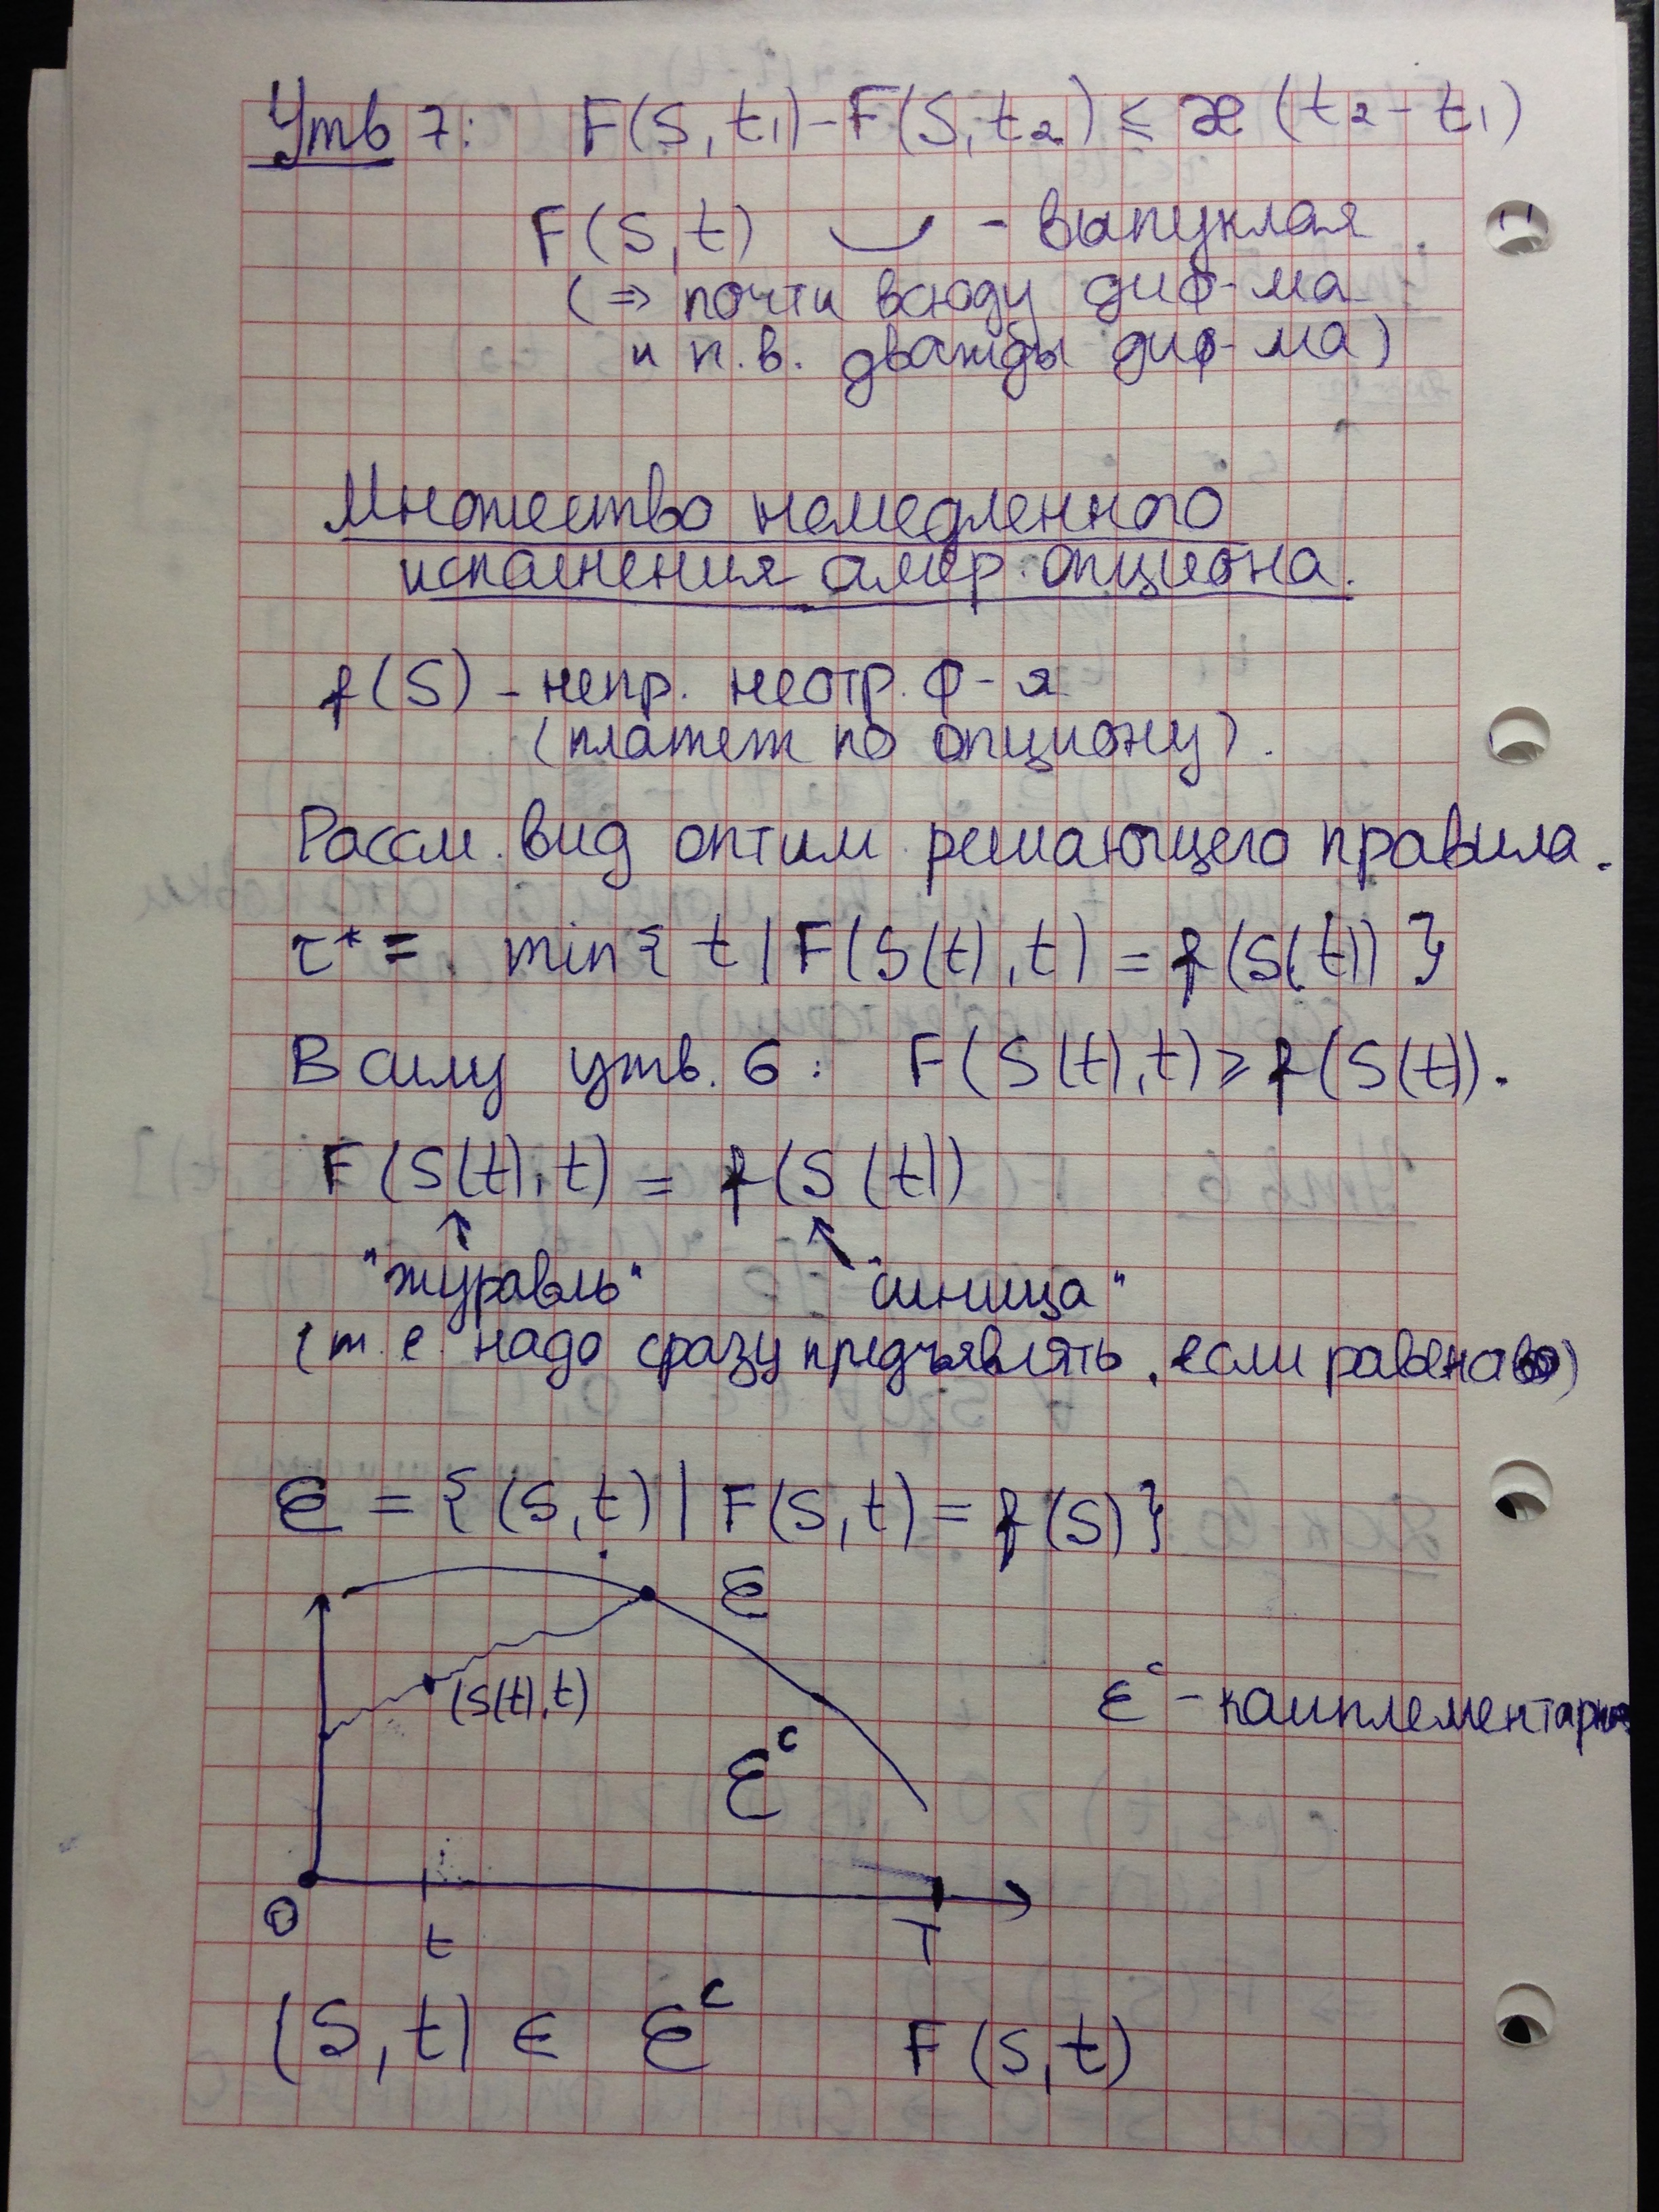 Утв 7: F(S, t₁) - F(S, t₂) ≤ æ (t₂ - t₁)
F(S, t) - выпуклая
(⇒ почти всюду диф-ма
и п.в. дважды диф-ма)
Множество немедленного
исполнения амер. опциона.
f(S) - непр. неотр. ф-я
(платеж по опциону).
Рассм. вид оптим. решающего правила.
τ* = min{ t | F(S(t), t) = f(S(t)) }
В силу утв. 6: F(S(t), t) ≥ f(S(t)).
F(S(t), t) = f(S(t))
"журавль" "синица"
(т.е. надо сразу предъявлять, если равенство)
Ɛ = {(S, t) | F(S, t) = f(S)}
Ɛ
(S(t), t)
Ɛᶜ - комплементарная
Ɛᶜ
0 t T
(S, t) ∈ Ɛᶜ F(S, t)